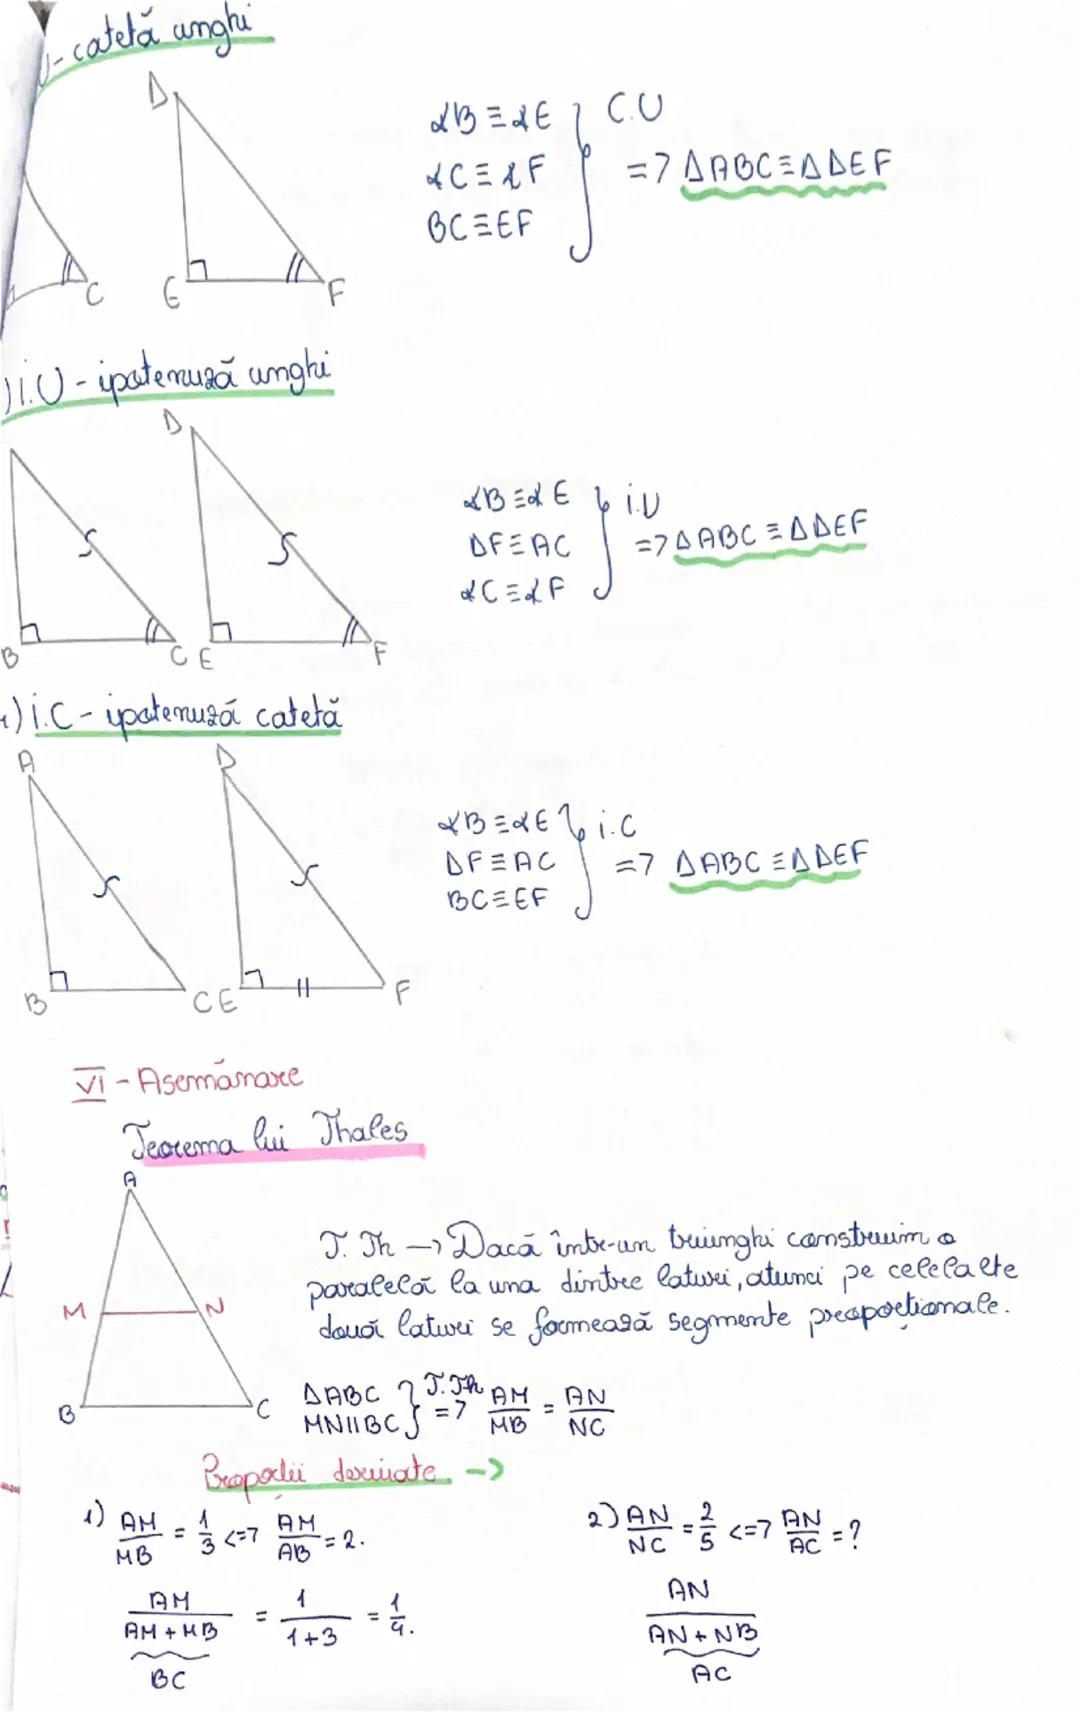 U - catetă unghi
D
∢B ≡ ∢E } C.U
∢C ≡ ∢F => ΔABC ≡ ΔDEF
BC ≡ EF
C E F
) i.U - ipotenuză unghi
D
∢B ≡ ∢E } i.U
DF ≡ AC => ΔABC ≡ ΔDEF
∢C ≡ ∢F
B C E F
) i.C - ipotenuză catetă
A D
∢B ≡ ∢E } i.C
DF ≡ AC => ΔABC ≡ ΔDEF
BC ≡ EF
B C E F
VI - Asemănare
Teorema lui Thales
A
T. Th → Dacă într-un triunghi construim o
paralelă la una dintre laturi, atunci pe celelalte
două laturi se formează segmente proporționale.
M N
B C
ΔABC } T.Th AM/MB = AN/NC
MN || BC =>
Proporții derivate ->
1) AM/MB = 1/3 <=> AM/AB = 2.
AM/(AM + MB) = 1/(1+3) = 1/4.
BC
2) AN/NC = 2/5 <=> AN/AC = ?
AN/(AN + NB)
AC